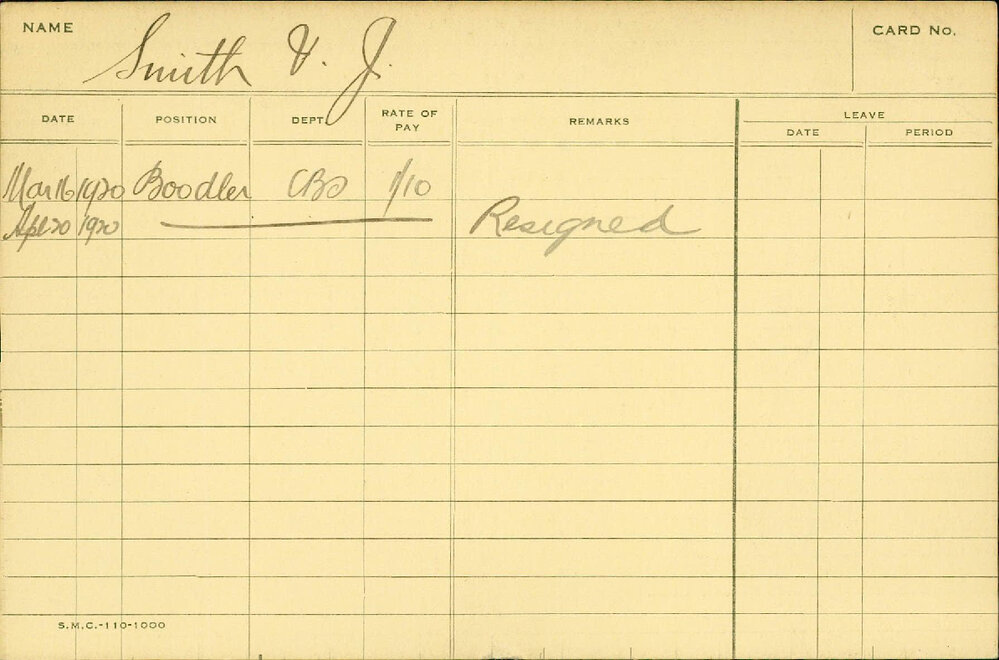 NAME Smith V. J. CARD No.
DATE POSITION DEPT RATE OF PAY REMARKS LEAVE DATE PERIOD
Mar 16 1920 Boodler 1/10
Apl 20 1920 Resigned
S.M.C.-110-1000